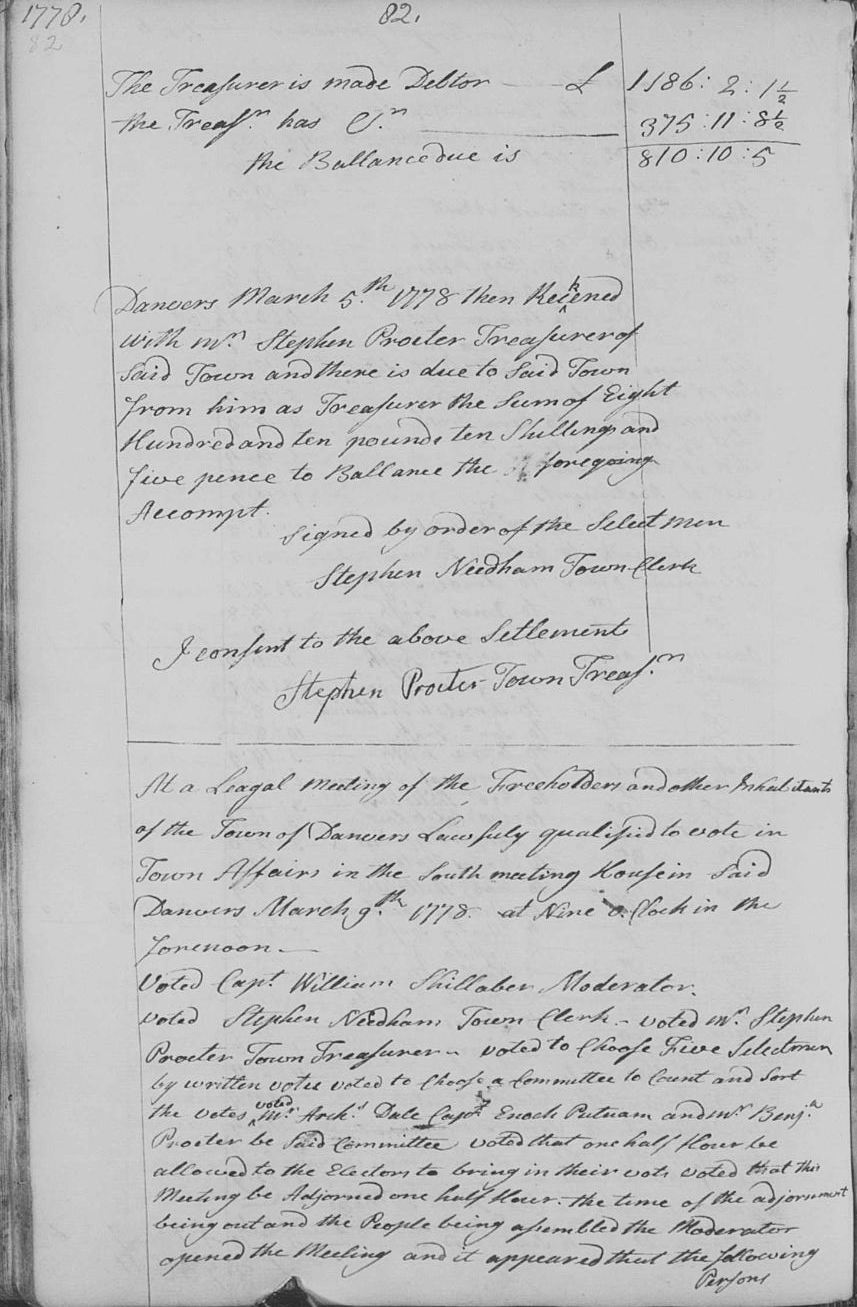 1778. 82.
82
The Treasurer is made Debtor — £ 1186: 2: 1½
the Treasr. has Cr. 375: 11: 8½
the Ballance due is 810: 10: 5
Danvers March 5th. 1778 then Reckened
with mr. Stephen Procter Treasurer of
Said Town and there is due to Said Town
from him as Treasurer the Sum of Eight
Hundred and ten pounds ten Shillings and
five pence to Ballance the foregoing
Accompt.
Signed by order of the Select men
Stephen Needham Town Clerk
I consent to the above Setlement
Stephen Procter Town Treasr.
At a Leagal meeting of the Freeholders and other Inhabitants
of the Town of Danvers Lawfuly qualified to vote in
Town Affairs in the South meeting House in Said
Danvers March 9th. 1778. at Nine o.Clock in the
forenoon —
Voted Capt. William Shillaber Moderator.
voted Stephen Needham Town Clerk - voted mr. Stephen
Procter Town Treasurer - voted to Choose Five Selectmen
by written votes voted to Choose a Committee to Count and Sort
the votes voted mr. Archd. Dale Capt. Enoch Putnam and mr. Benja.
Procter be Said Committee voted that one half Hour be
allowed to the Electors to bring in their vots voted that this
Meeting be Adjorned one half Hour. the time of the adjornment
being out and the People being assembled the Moderator
opened the Meeting and it appeared that the following
Persons